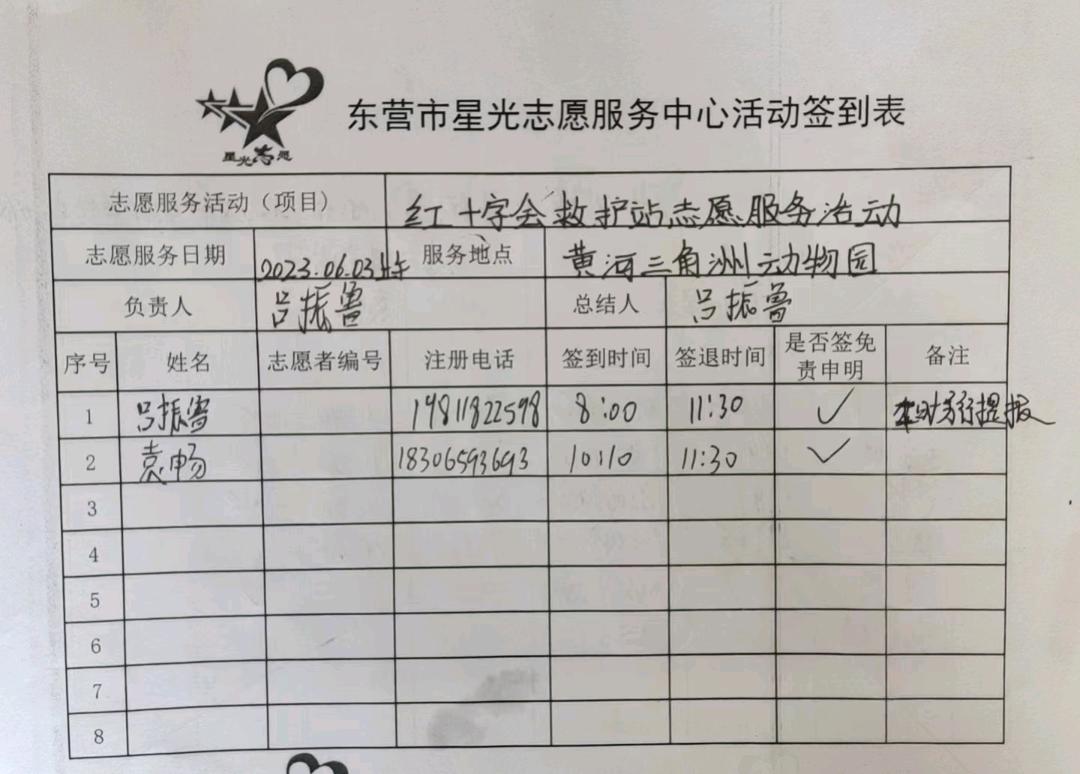 星光志愿
东营市星光志愿服务中心活动签到表
志愿服务活动（项目） 红十字会救护站志愿服务活动
志愿服务日期 2023.06.03 服务地点 黄河三角洲动物园
负责人 吕振鲁 总结人 吕振鲁
序号 姓名 志愿者编号 注册电话 签到时间 签退时间 是否签免责申明 备注
1 吕振鲁 19811822598 8:00 11:30 ✓
2 袁畅 18306593693 10:10 11:30 ✓
3
4
5
6
7
8